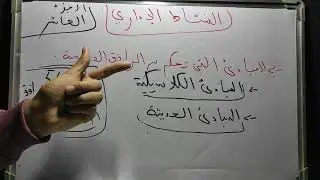 الجزء العاشر
النشاط الإداري
المبادئ التي تحكم سير المرافق
المبادئ الكلاسيكية
المبادئ الحديثة